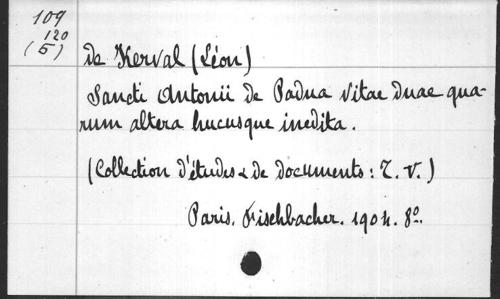 109
120
(5)
de Kerval (Léon)
Sancti Antonii de Padua vitae duae qua-
rum altera hucusque inedita.
(Collection d'études & de documents: T. V.)
Paris. Fischbacher. 1904. 8º.